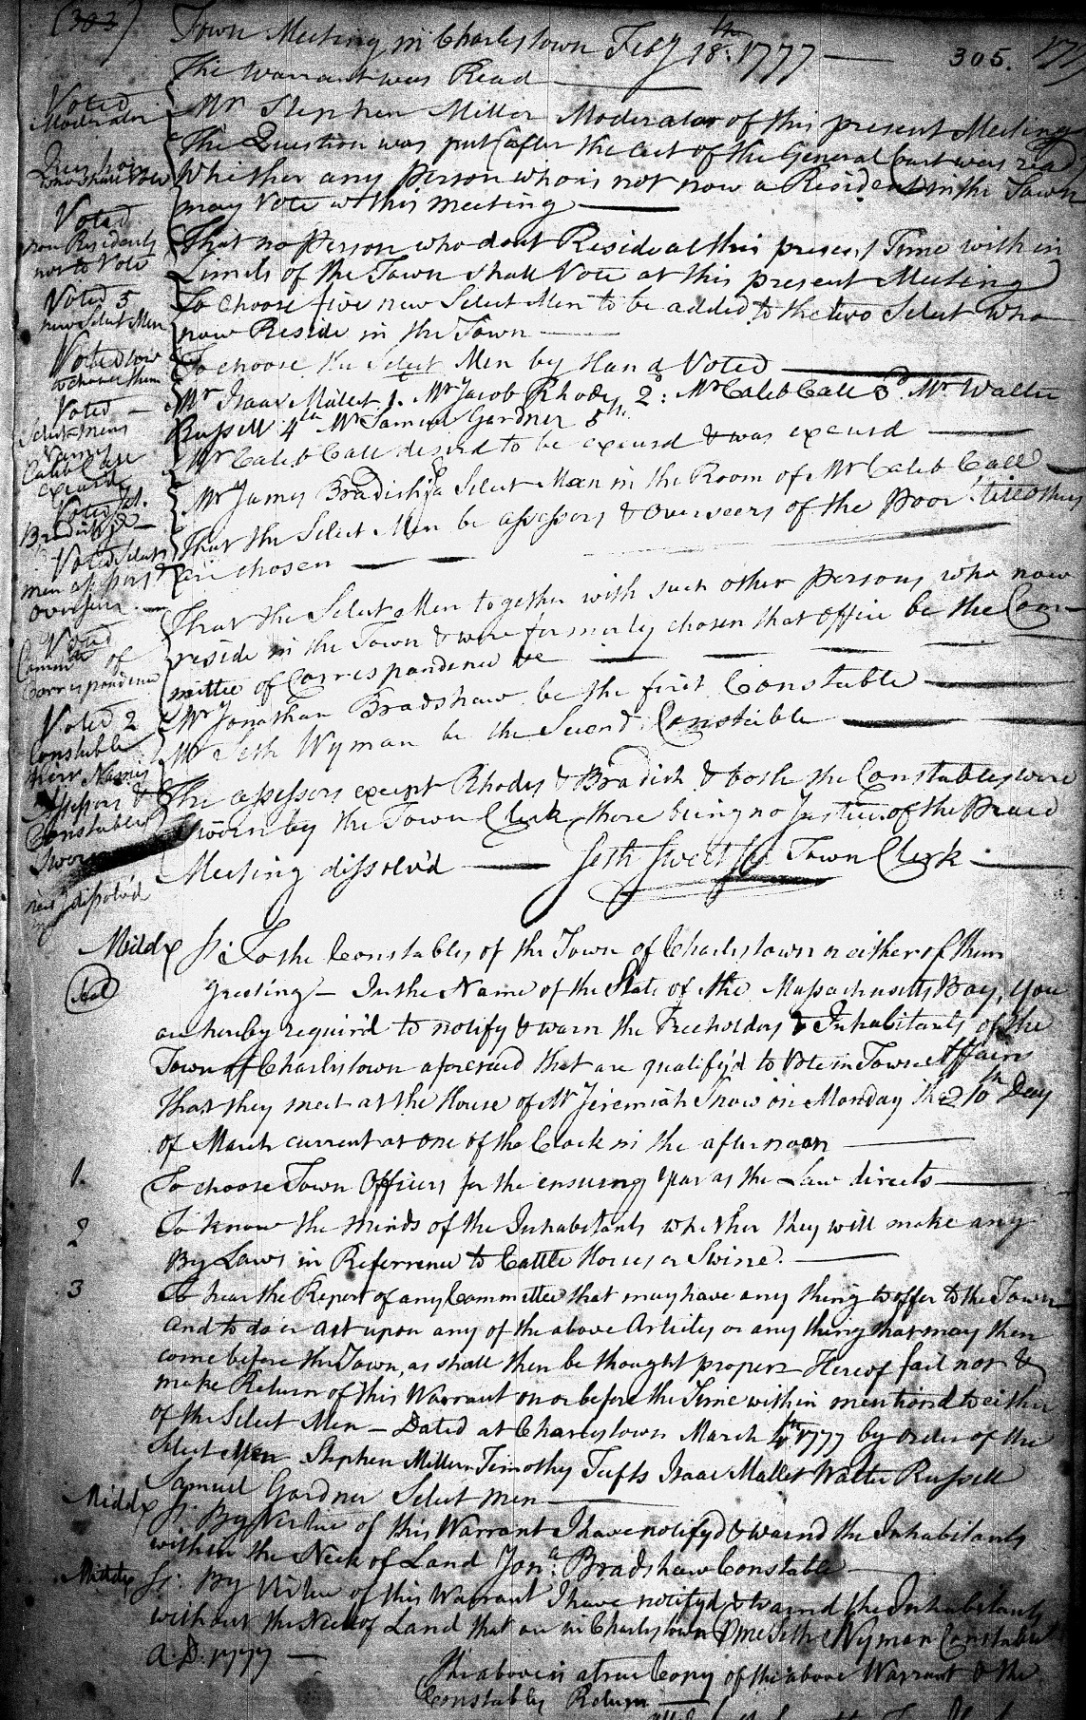 (303)
Town Meeting in Charlestown Feby 18th. 1777 — 305.
The Warrant was Read
Voted Moderator
Mr Stephen Miller Moderator of this present Meeting
The Question was put (after the act of the General Court was read)
Whether any person who is not now a Resident in the Town
may Vote at this meeting
Voted non Residents not to Vote
That no person who dont Reside at this present Time with in
Limits of the Town shall Vote at this present Meeting
Voted 5 new Select Men
To choose five new Select Men to be added to the two Select who
now Reside in the Town
Voted how to choose them
To choose the Select Men by Hand Voted
Voted Select mens Names
Mr Isaac Mallet 1. Mr Jacob Rhodes 2d: Mr Caleb Call 3d. Mr Walter
Russell 4th Mr Samuel Gardner 5th.
Caleb Call excused
Mr Caleb Call desird to be excusd & was excusd
Mr James Bradish a Select Man in the Room of Mr Caleb Call
Voted Select men assessors & Overseers
That the Select Men be assessors & Overseers of the Poor till others
are chosen
Voted Committee of Correspondence
That the Select Men together with such other persons, who now
reside in the Town & were formerly chosen that office be the Com-
mittee of Correspondence
Voted 2 Constables their Names
Mr Jonathan Bradshaw be the first Constable
Mr Seth Wyman be the Second Constable
Assessors & Constables Sworn
The assessors except Rhodes & Bradish & both the Constables were
Sworn by the Town Clerk, there being no Justice of the Peace
Meeting dissolv'd — Seth Sweetser Town Clerk
Middx Ss. To the Constables of the Town of Charlestown or either of them
(Seal) Greeting — In the Name of the State of the Massachusetts Bay, You
are hereby requir'd to notify & warn the Freeholders & Inhabitants of the
Town of Charlestown aforesaid that are qualify'd to Vote in Town Affairs
That they meet at the House of Mr Jeremiah Snow on Monday the 10th Day
of March current at one of the Clock in the afternoon
1. To choose Town Officers for the ensuing Year as the Law directs
2 To know the minds of the Inhabitants whether they will make any
By Laws in Referrence to Cattle Horses or Swine.
3 To hear the Report of any Committee that may have any thing to offer to the Town
And to do or act upon any of the above Articles or any thing that may then
come before the Town, as shall then be thought proper — Hereof fail not &
make Return of this Warrant on or before the Time within mentiond to either
of the Select Men — Dated at Charlestown March 4th 1777 by order of the
Select Men Stephen Miller Timothy Tufts Isaac Mallet Walter Russell
Samuel Gardner Select men
Middx Ss. By Virtue of this Warrant I have notifyd & warnd the Inhabitants
within the Neck of Land Jona. Bradshaw Constable
Middx Ss. By Virtue of this Warrant I have notifyd & warnd the Inhabitants
without the Neck of Land that are in Charlestown Pr me Seth Wyman Constable
A:D. 1777 —
The above is a true Copy of the above Warrant & the
Constables Return